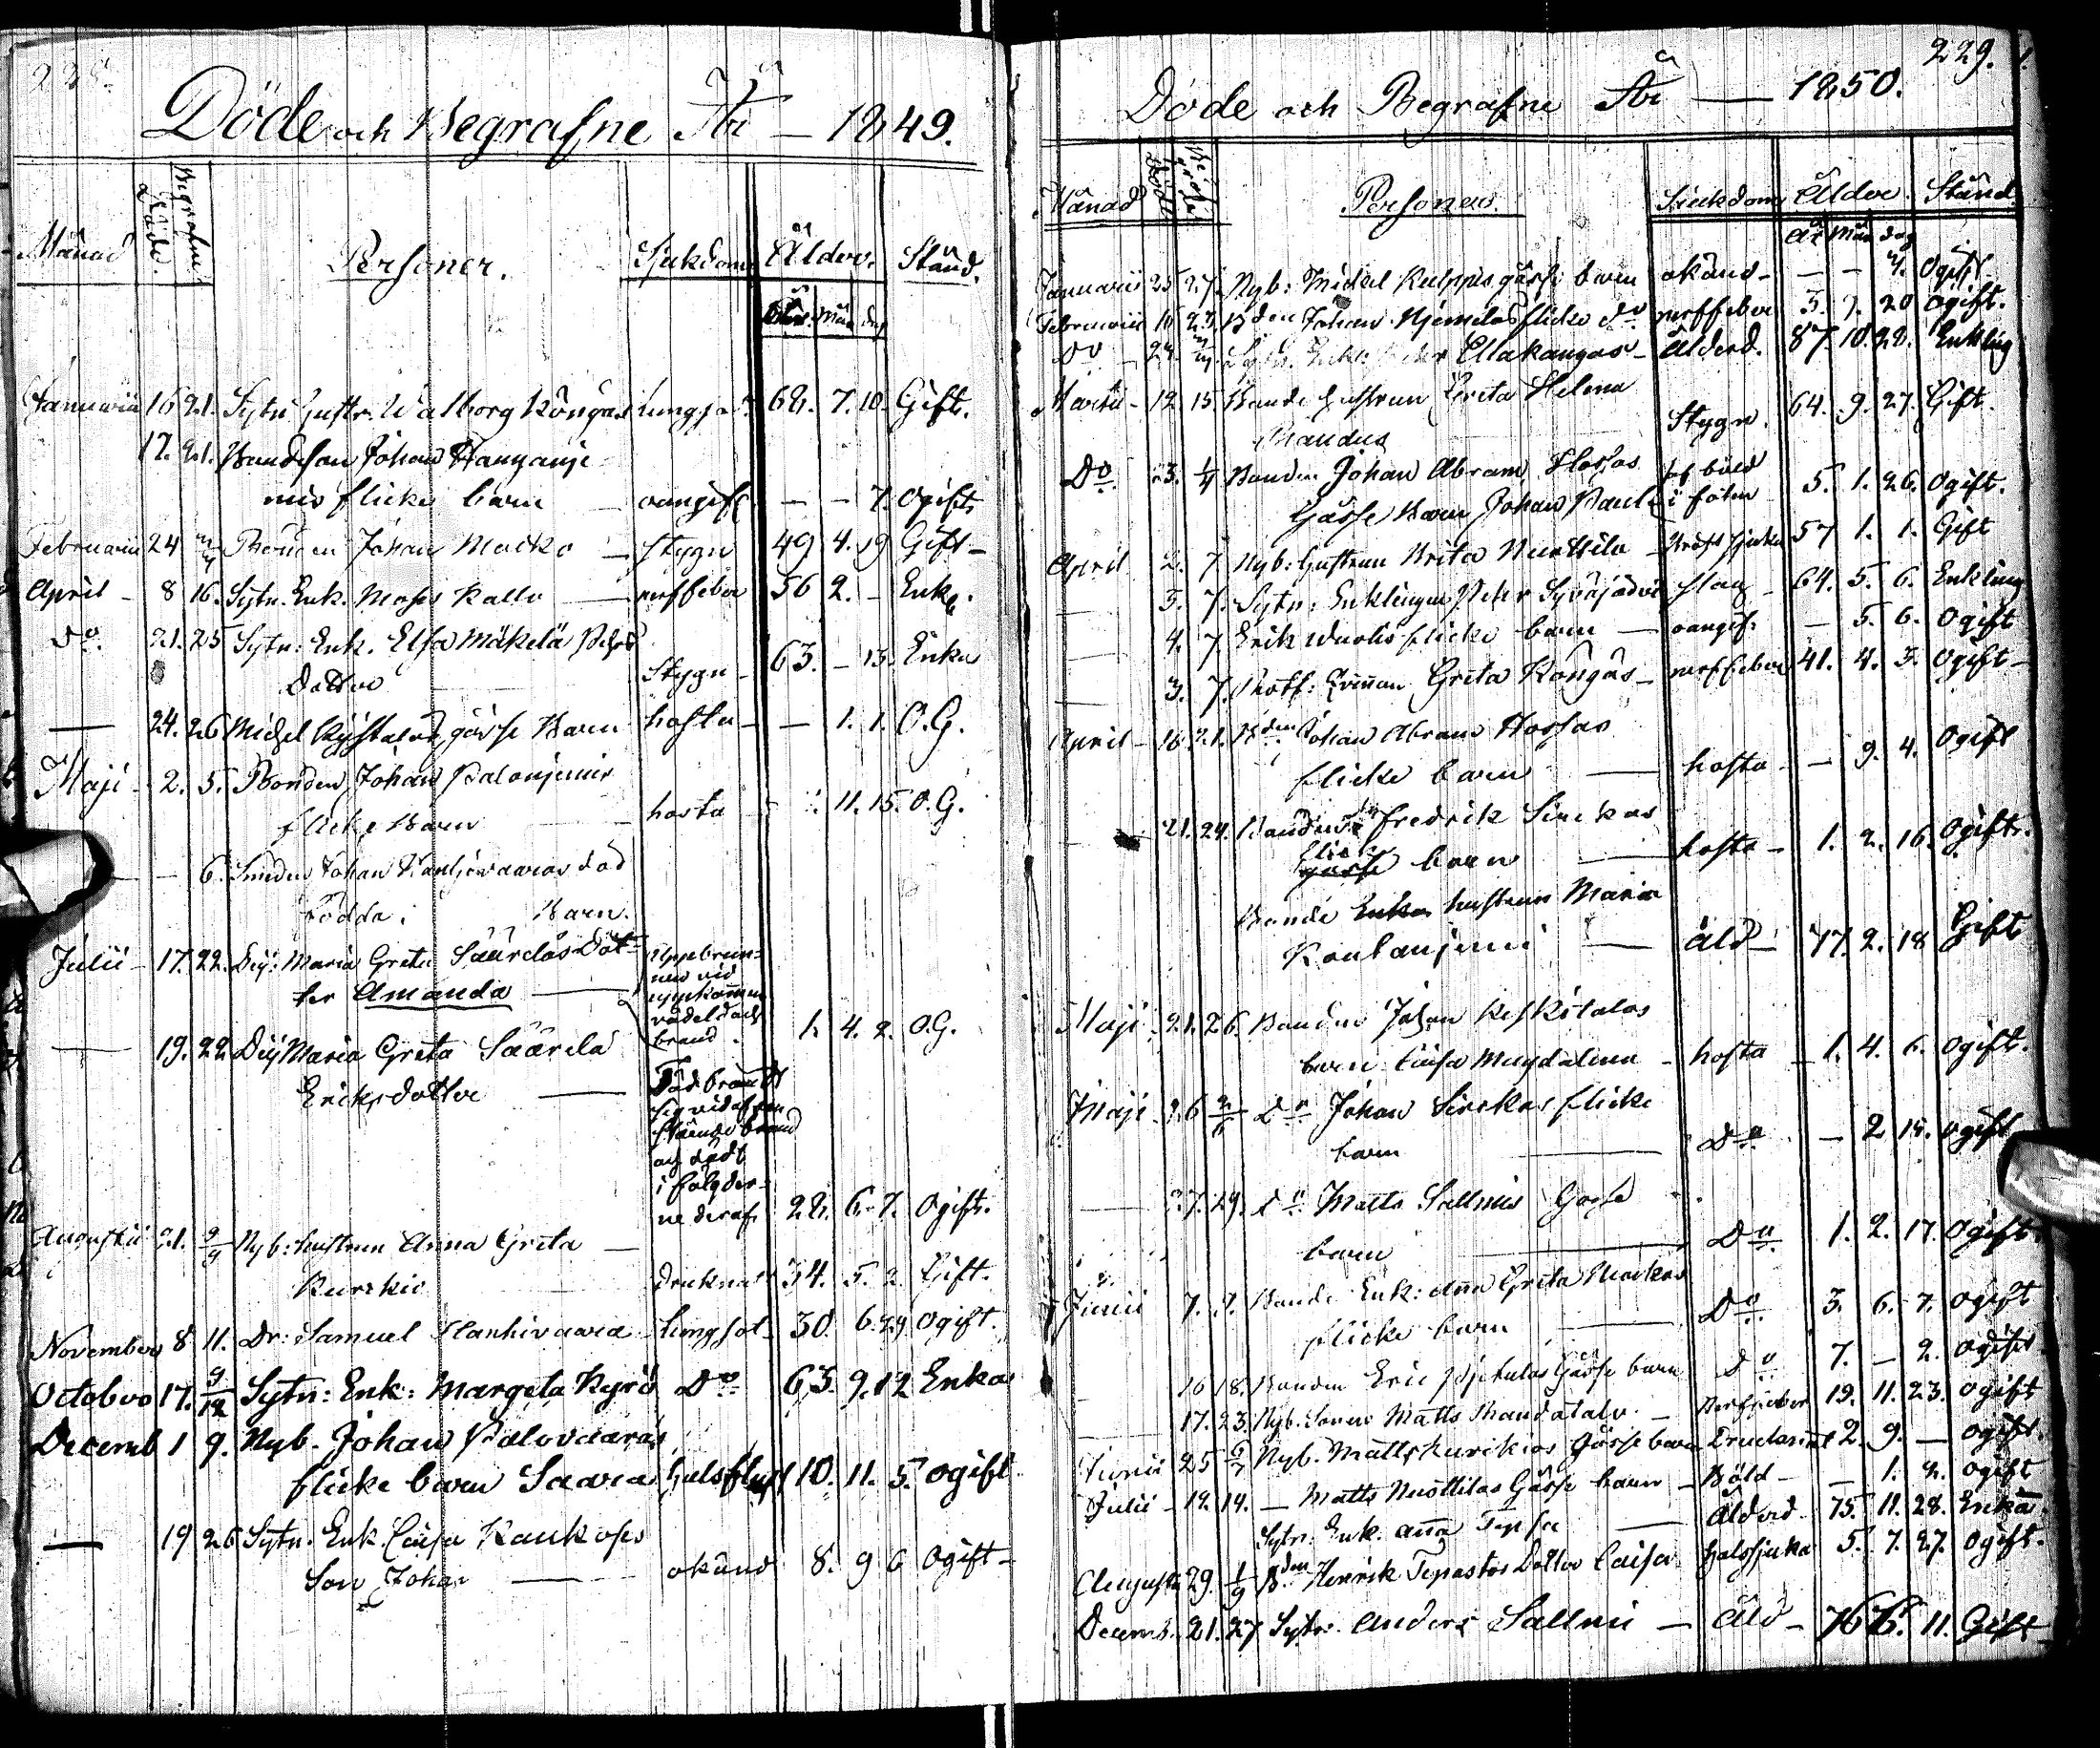 228.
Döde och Begrafne År — 1849.
Månad Döde. Begrafne Personer. Sjukdom Ålder. Stånd.
År. Mån dag
Januarii 16 21. Sytn: hustr. Walborg Köngäs lungsot 68. 7. 10. Gift.
17. 21. Bondeson Johan
flicke barn oangif. — — 7. Ogift.
Februarii 24 Bonden Johan Mocko — stygn 49 4. 19 Gift —
April — 8 16. Sytn. Enk. Moses Kallo — nerffeber 56 2. — Enk.
Do. 21. 25 Sytn: Enk. Elsa Mäkelä Pehrs
Dotter — Stygn — 63. — 13. Enka
— 24. 26 Michel gosse Barn hosta — — 1. 1. O.G.
Maji — 2. 5. Bonden Johan Palonjemis
flicke Barn hosta 11. 15. O.G.
— 6. Smeden Johan död
födda. Barn.
Julii — 17. 22. Pig: Maria Greta Säärelas Dot-
ter Amanda — uppbrun-
nen vid
uppkommen
vådeld och
brand. 1. 4. 2. O.G.
— 19. 22 Pig Maria Greta Säärela
Eriksdotter — Död brändt
sig vid
stående brand
och dödt
i följder-
ne deraf 22. 6. 7. Ogift.
Augustii 21. 2/9 Nyb: hustrun Anna Greta —
Kurkio druknat 34. 5. 2. Gift.
November 8 11. Dr: Samuel Hanhivaara — lungsot 30. 6. 29 Ogift.
October 17. 9/12 Sytn: Enk: Margeta Kyrö Do 63. 9. 12 Enka
Decemb 1 9. Nyb. Johan Palovaaras
flicke barn Saara halsfluss 10. 11. 5. ogift
— 19 26 Sytn. Enk. Caisa Raukoses
Son Johan — okänd 8. 9 6 Ogift —
229.
Döde och Begrafne År — 1850.
Månad Personer. Siukdom Ålder Stånd
År Mån dag
Januarii 25 27. Nyb: Michel Kulppis gosse barn okänd — — — 4. Ogift.
Februarii 16 23. Bden Johan Niemelas flicke do nerffeber 3. 7. 20 Ogift.
Do — 24. Sytn. Enkl. Ellakangas — Ålderd. 87. 10. 28. Enkling
Martii — 12. 15. Bonde hustrun Greta Helena
Mandus Stygn. 64. 9. 27. Gift.
Do. 23. 1/4 Bonden Johan Abram Hossas
Gosse Barn Johan Paul böld
i foten 5. 1. 26. Ogift.
April 2. 7 Nyb: hustrun Brita Nuottila — 57 1. 1. Gift
3. 7. Sytn: Enklingen Pehr Syväjärvi slag — 64. 5. 6. Enkling
4. 7. Erik Wuolis flicke barn — oangif. — 5. 6. Ogift
3. 7. Rotf: Qvinnan Greta Köngäs — nerffeber 41. 4. 3. Ogift —
April — 16. 21. Bden Johan Abram Hossas
flicke barn — hosta — — 9. 4. Ogift
21. 24. Bondens Fredrik Sirckas
flick
gosse barn — hosta — 1. 2. 16. Ogift.
Bonde Enka hustrun Maria
Koutanjemi — Åld — 77. 2. 18 Gift
Maji 21. 26. Bonden Johan Keskitalos
barn Caisa Magdalena — hosta — 1. 4. 6. Ogift.
Maji 26 2/6 Do Johan Sirckas flicke
barn — Do — 2 18. ogift
27. 29. do Matts Sallmis Gosse
barn — Do. 1. 2. 17. Ogift
Junii 7. 9. Bonde Enk: Anna Greta Mockos
flicke barn — Do. 3. 6. 7. Ogift
16 18. Bonden Eric Gosse barn Do 7. — 2. Ogift
17. 23. Nyb. Sonen Matts Mandatalo. — Nerffeber 19. 11. 23. Ogift
Junii 25 6/7 Nyb. Matts Kurckios Gosse barn Drucknat 2. 9. — Ogift.
Julii — 12. 14. — Matts Nuottilas Gosse barn — Böld — — 1. 2. Ogift
Sytn: Enk. Anna Tepsa — Ålderd. 75. 11. 28. Enka.
Augusti 29. 1/9 Bden Henrik Tepastos Dotter Caisa halssjuka 5. 7. 27. Ogift.
Decemb. 21. 27 Sytn. Anders Sallmi — Åld — 76 6. 11. Gift